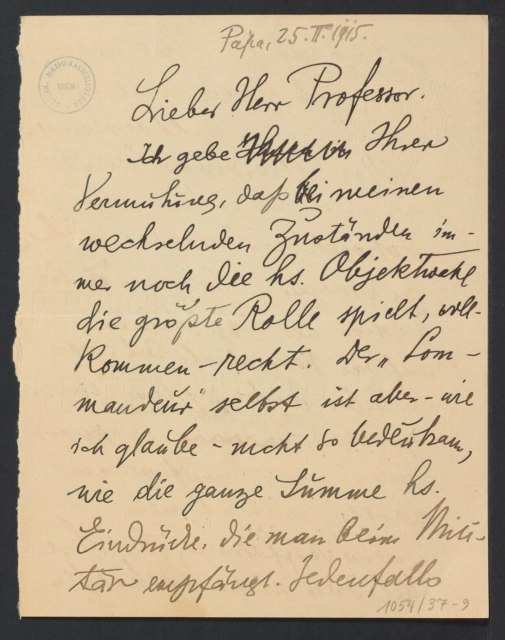 Pápa, 25. II. 1915.
WIEN
Lieber Herr Professor.
Ich gebe Ihrer
Vermuthung, daß bei meinen
wechselnden Zuständen im-
mer noch die hs. Objektwahl
die größte Rolle spielt, voll-
kommen-recht. Der „Com-
mandeur" selbst ist aber - wie
ich glaube - nicht so bedeutsam,
wie die ganze Summe hs.
Eindrücke, die man beim Mili-
tär empfängt. Jedenfalls
1054/37-9